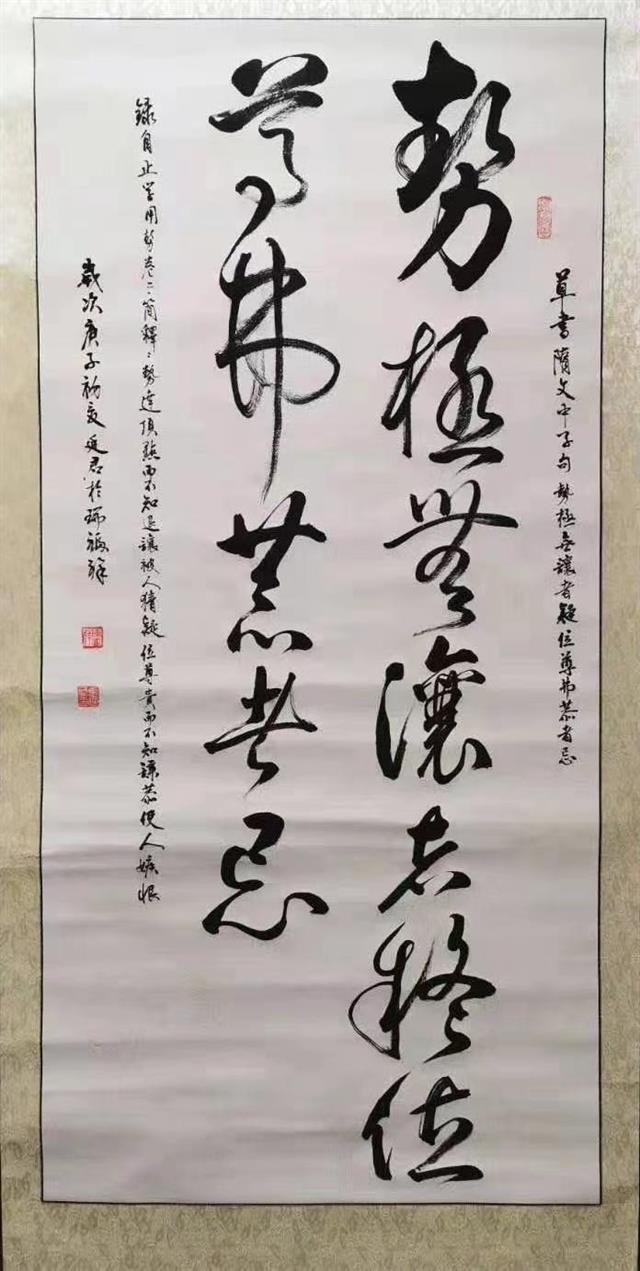 草書隋文中子句勢極無讓者疑位尊弗恭者忌
勢極無讓者疑位
尊弗恭者忌
録自止学用勢卷二簡釋勢達頂點而不知退讓被人猜疑位尊貴而不知謙恭使人嫉恨
歲次庚子初夏延君於瑞福祥